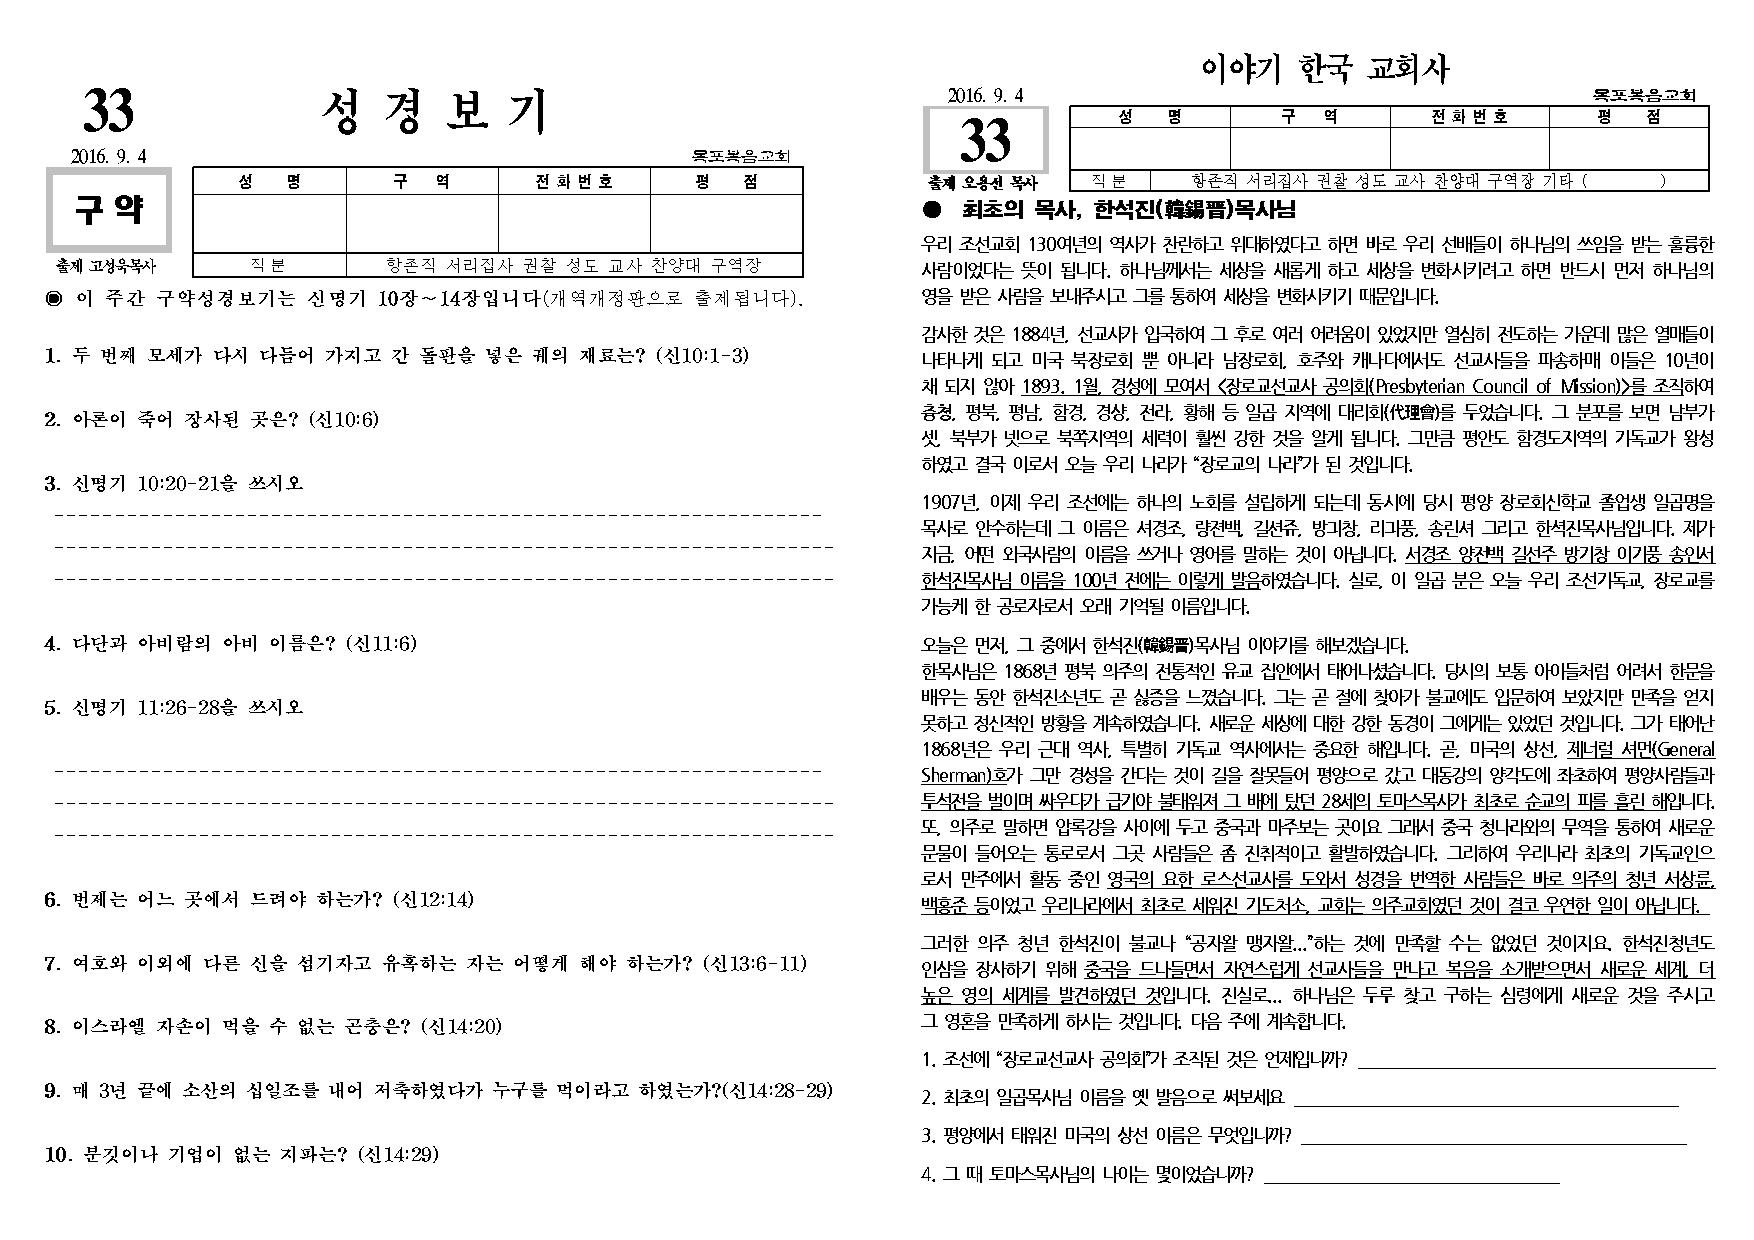 33
성 경 보 기
2016. 9. 4
목포복음교회
구 약
성 명 구 역 전 화 번 호 평 점
출제 고성욱목사
직 분 항존직 서리집사 권찰 성도 교사 찬양대 구역장
◉ 이 주간 구약성경보기는 신명기 10장~14장입니다(개역개정판으로 출제됩니다).
1. 두 번째 모세가 다시 다듬어 가지고 간 돌판을 넣은 궤의 재료는? (신10:1-3)
2. 아론이 죽어 장사된 곳은? (신10:6)
3. 신명기 10:20-21을 쓰시오
4. 다단과 아비람의 아비 이름은? (신11:6)
5. 신명기 11:26-28을 쓰시오
6. 번제는 어느 곳에서 드려야 하는가? (신12:14)
7. 여호와 이외에 다른 신을 섬기자고 유혹하는 자는 어떻게 해야 하는가? (신13:6-11)
8. 이스라엘 자손이 먹을 수 없는 곤충은? (신14:20)
9. 매 3년 끝에 소산의 십일조를 내어 저축하였다가 누구를 먹이라고 하였는가?(신14:28-29)
10. 분깃이나 기업이 없는 지파는? (신14:29)
이야기 한국 교회사
2016. 9. 4
목포복음교회
33
성 명 구 역 전 화 번 호 평 점
출제 오용선 목사
직 분 항존직 서리집사 권찰 성도 교사 찬양대 구역장 기타 ( )
● 최초의 목사, 한석진(韓錫晋)목사님
우리 조선교회 130여년의 역사가 찬란하고 위대하였다고 하면 바로 우리 선배들이 하나님의 쓰임을 받는 훌륭한
사람이었다는 뜻이 됩니다. 하나님께서는 세상을 새롭게 하고 세상을 변화시키려고 하면 반드시 먼저 하나님의
영을 받은 사람을 보내주시고 그를 통하여 세상을 변화시키기 때문입니다.
감사한 것은 1884년, 선교사가 입국하여 그 후로 여러 어려움이 있었지만 열심히 전도하는 가운데 많은 열매들이
나타나게 되고 미국 북장로회 뿐 아니라 남장로회, 호주와 캐나다에서도 선교사들을 파송하매 이들은 10년이
채 되지 않아 1893. 1월, 경성에 모여서 <장로교선교사 공의회(Presbyterian Council of Mission)>를 조직하여
츙쳥, 평북, 평남, 함경, 경상, 전라, 황해 등 일곱 지역에 대리회(代理會)를 두었습니다. 그 분포를 보면 남부가
셋, 북부가 넷으로 북쪽지역의 세력이 훨씬 강한 것을 알게 됩니다. 그만큼 평안도 함경도지역의 기독교가 왕성
하였고 결국 이로서 오늘 우리 나라가 “장로교의 나라”가 된 것입니다.
1907년, 이제 우리 조선에는 하나의 노회를 설립하게 되는데 동시에 당시 평양 장로회신학교 졸업생 일곱명을
목사로 안수하는데 그 이름은 셔경조, 량젼백, 길션쥬, 방긔창, 리긔풍, 송린셔 그리고 한셕진목사님입니다. 제가
지금, 어떤 외국사람의 이름을 쓰거나 영어를 말하는 것이 아닙니다. 서경조 양전백 길선주 방기창 이기풍 송인서
한석진목사님 이름을 100년 전에는 이렇게 발음하였습니다. 실로, 이 일곱 분은 오늘 우리 조선기독교, 장로교를
가능케 한 공로자로서 오래 기억될 이름입니다.
오늘은 먼저, 그 중에서 한석진(韓錫晋)목사님 이야기를 해보겠습니다.
한목사님은 1868년 평북 의주의 전통적인 유교 집안에서 태어나셨습니다. 당시의 보통 아이들처럼 어려서 한문을
배우는 동안 한석진소년도 곧 싫증을 느꼈습니다. 그는 곧 절에 찾아가 불교에도 입문하여 보았지만 만족을 얻지
못하고 정신적인 방황을 계속하였습니다. 새로운 세상에 대한 강한 동경이 그에게는 있었던 것입니다. 그가 태어난
1868년은 우리 근대 역사, 특별히 기독교 역사에서는 중요한 해입니다. 곧, 미국의 상선, 제너럴 셔먼(General
Sherman)호가 그만 경성을 간다는 것이 길을 잘못들어 평양으로 갔고 대동강의 양각도에 좌초하여 평양사람들과
투석전을 벌이며 싸우다가 급기야 불태워져 그 배에 탔던 28세의 토마스목사가 최초로 순교의 피를 흘린 해입니다.
또, 의주로 말하면 압록강을 사이에 두고 중국과 마주보는 곳이요 그래서 중국 청나라와의 무역을 통하여 새로운
문물이 들어오는 통로로서 그곳 사람들은 좀 진취적이고 활발하였습니다. 그리하여 우리나라 최초의 기독교인으
로서 만주에서 활동 중인 영국의 요한 로스선교사를 도와서 성경을 번역한 사람들은 바로 의주의 청년 서상륜,
백홍준 등이었고 우리나라에서 최초로 세워진 기도처소, 교회는 의주교회였던 것이 결코 우연한 일이 아닙니다.
그러한 의주 청년 한석진이 불교나 “공자왈 맹자왈...”하는 것에 만족할 수는 없었던 것이지요. 한석진청년도
인삼을 장사하기 위해 중국을 드나들면서 자연스럽게 선교사들을 만나고 복음을 소개받으면서 새로운 세계, 더
높은 영의 세계를 발견하였던 것입니다. 진실로... 하나님은 두루 찾고 구하는 심령에게 새로운 것을 주시고
그 영혼을 만족하게 하시는 것입니다. 다음 주에 계속합니다.
1. 조선에 “장로교선교사 공의회”가 조직된 것은 언제입니까?
2. 최초의 일곱목사님 이름을 옛 발음으로 써보세요
3. 평양에서 태워진 미국의 상선 이름은 무엇입니까?
4. 그 때 토마스목사님의 나이는 몇이었습니까?